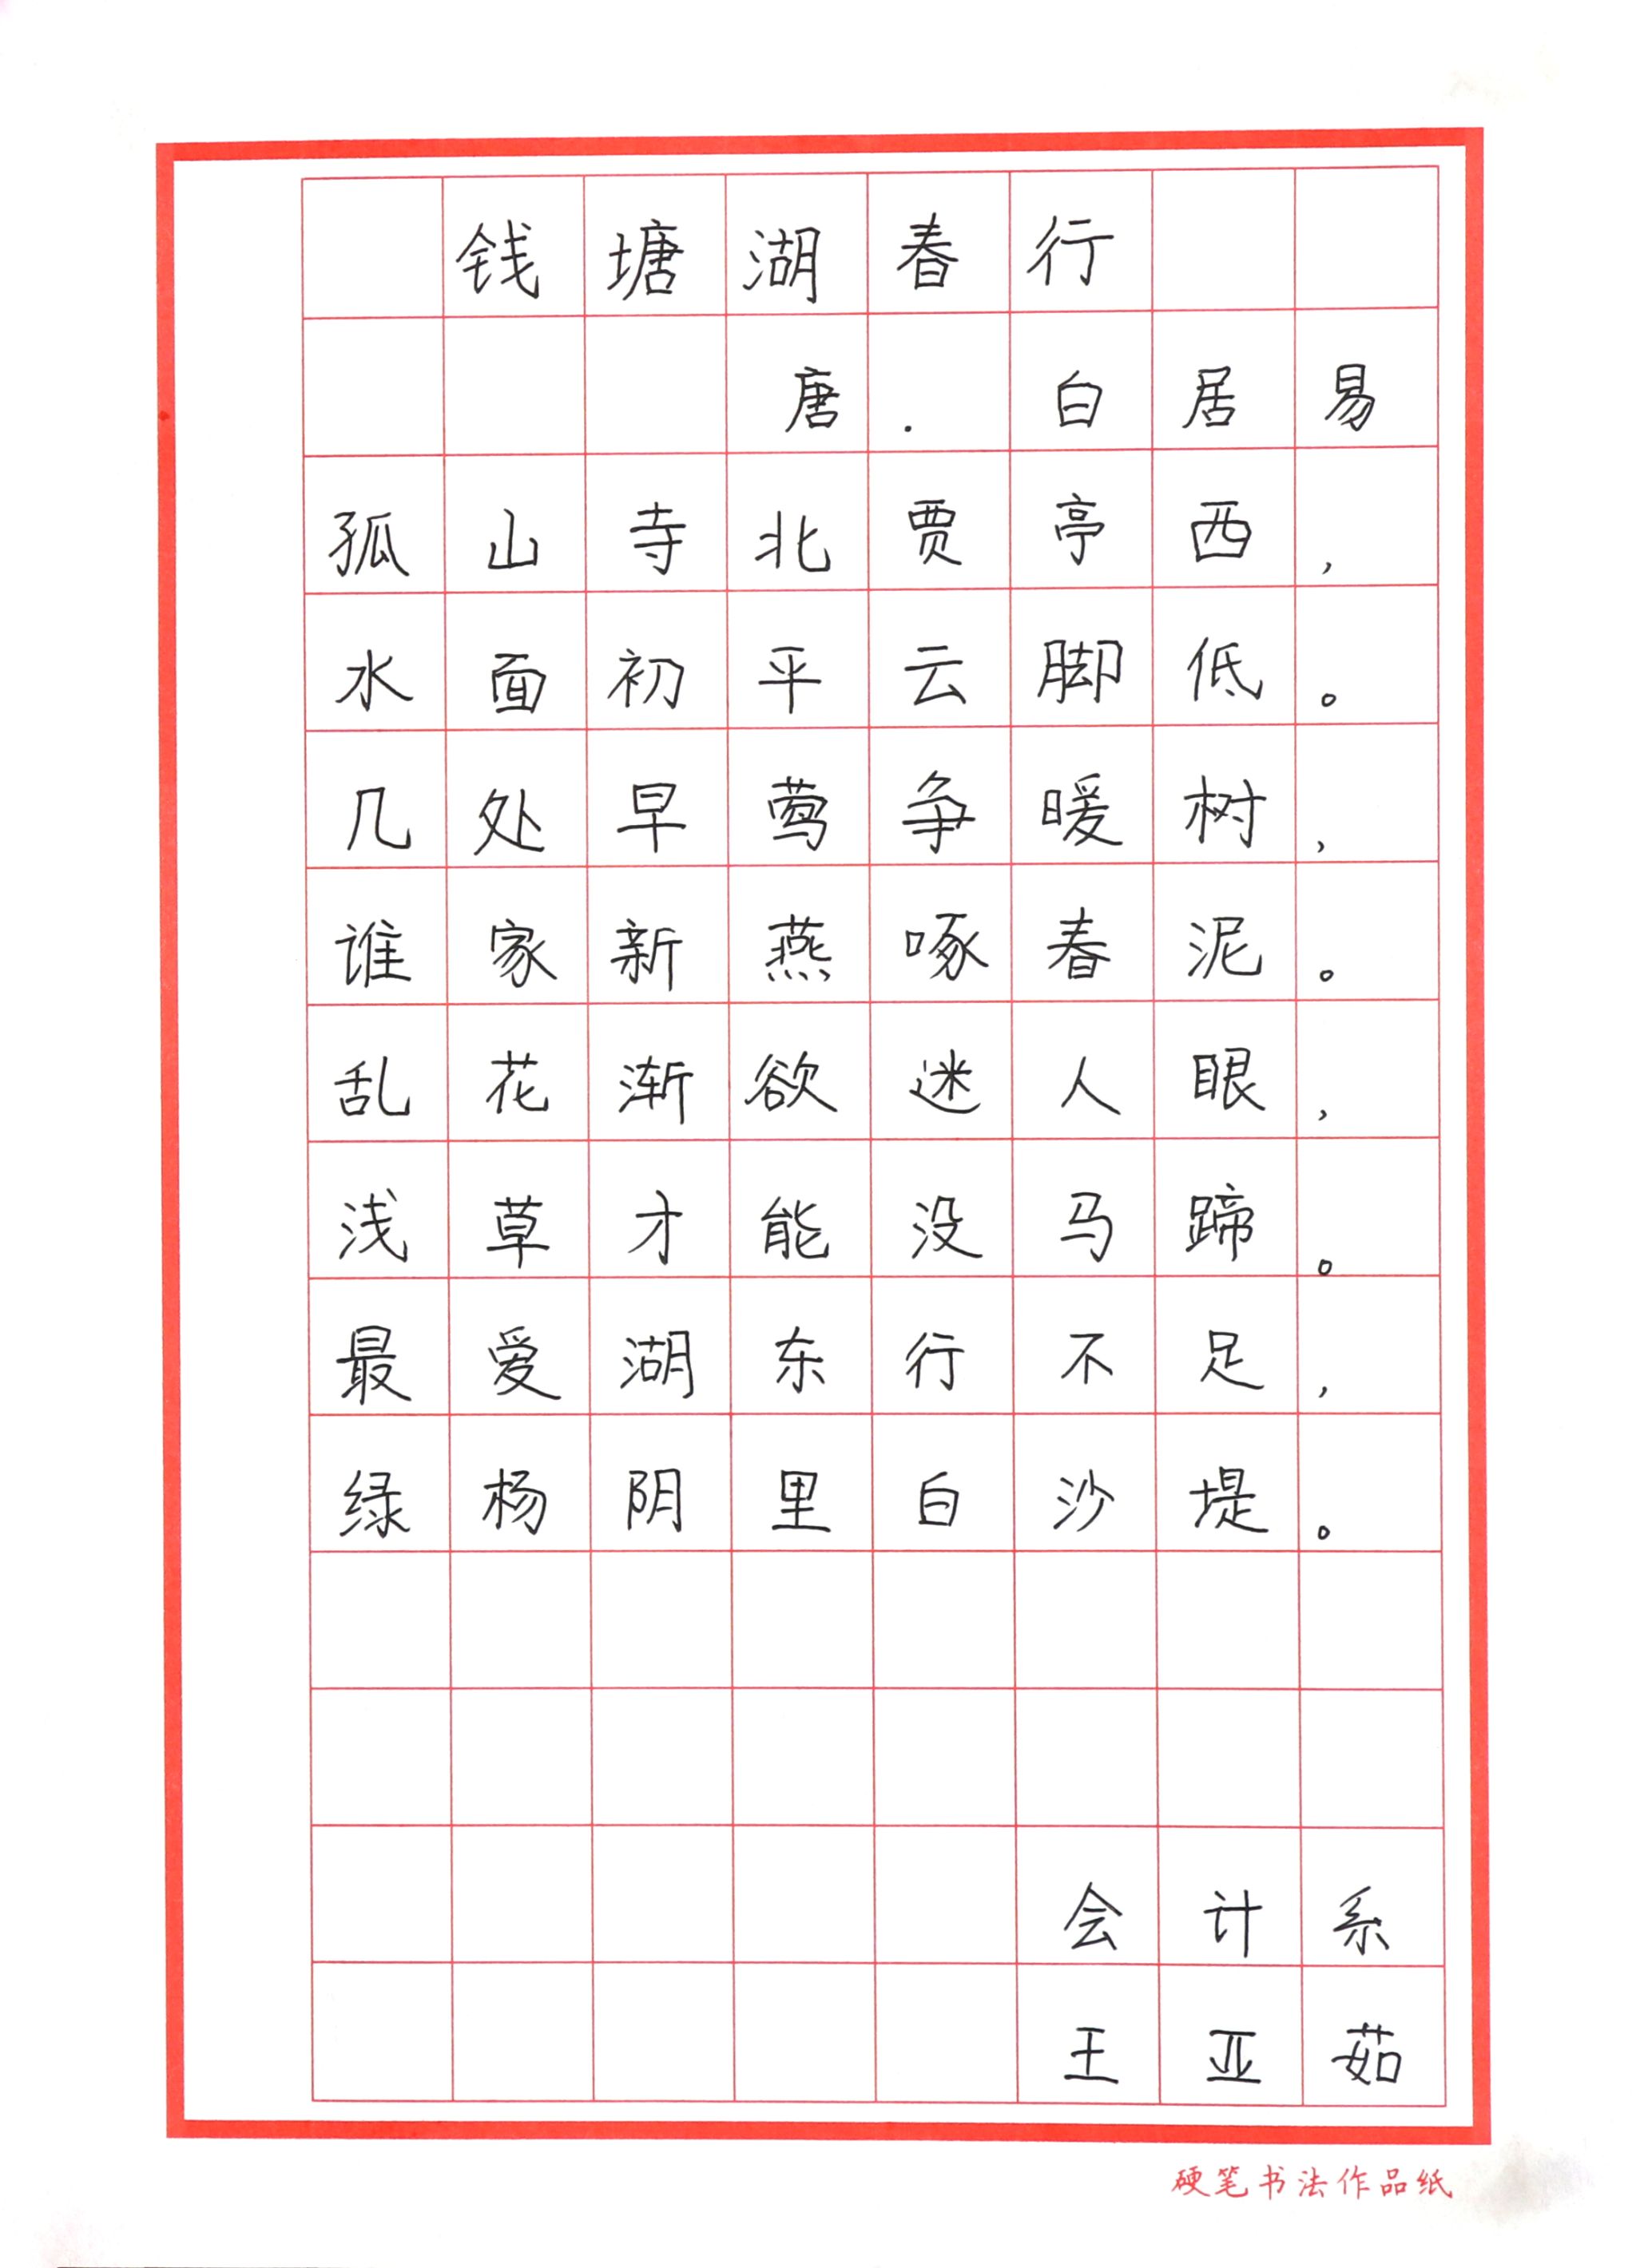 钱塘湖春行
唐.白居易
孤山寺北贾亭西，
水面初平云脚低。
几处早莺争暖树，
谁家新燕啄春泥。
乱花渐欲迷人眼，
浅草才能没马蹄。
最爱湖东行不足，
绿杨阴里白沙堤。
会计系
王亚茹
硬笔书法作品纸